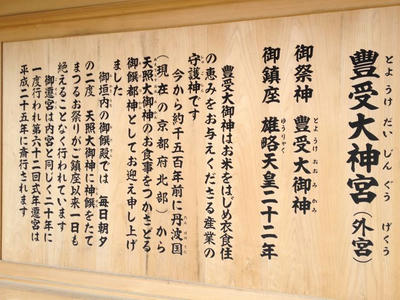 豊受大神宮（外宮）
とようけだいじんぐう　げくう
御祭神　豊受大御神
とようけおおみかみ
御鎮座　雄略天皇二十二年
ゆうりゃく
豊受大御神はお米をはじめ衣食住
の恵みをお与えくださる産業の
守護神です
今から約千五百年前に丹波国
たんばのくに
（現在の京都府北部）から
天照大御神のお食事をつかさどる
御饌都神としてお迎え申し上げ
ました
御垣内の御饌殿では　毎日朝夕
の二度　天照大御神に神饌をたて
まつるお祭りがご鎮座以来一日も
絶えることなく行われています
御遷宮は内宮と同じく二十年に
一度行われ第六十二回式年遷宮は
平成二十五年に斎行されます